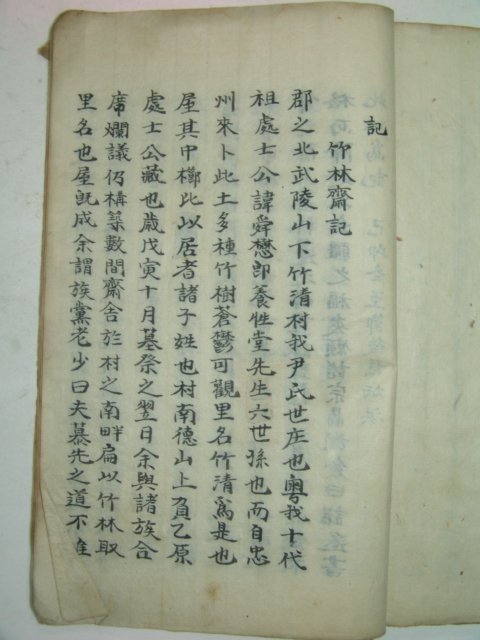 記
竹林齋記
郡之北武陵山下竹清村我尹氏世庄也粤我十代
祖處士公諱舜懋卽養性堂先生六世孫也而自忠
州來卜此土多種竹樹蒼鬱可觀里名竹清爲是也
屋其中櫛比以居者諸子姓也村南德山上負乙原
處士公藏也歲戊寅十月墓祭之翌日余與諸族合
席爛議仍構築數間齋舍於村之南畔扁以竹林取
里名也屋旣成余謂族黨老少曰夫慕先之道不隹